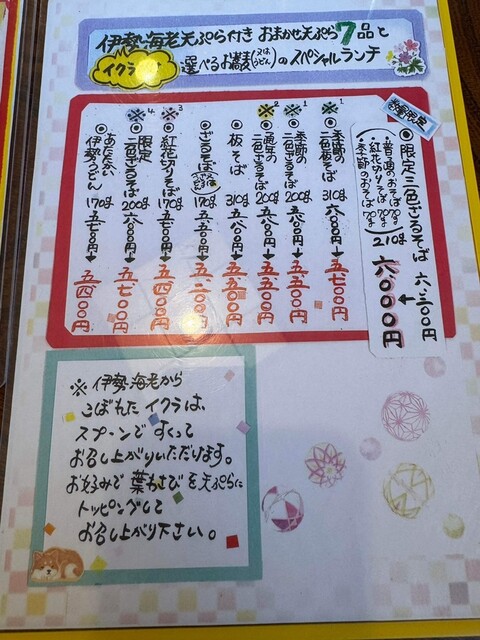 伊勢海老天ぷら付き おまかせ天ぷら7品と
イクラ
選べるお蕎麦(又はうどん)のスペシャルランチ
数量限定
◎限定三色ざるそば 六、三〇〇円
・普通のおそば70g
・紅花切りそば70g
・季節のおそば70g
210g
六、〇〇〇円
※1
◎季節の二色板そば 310g 六、一〇〇円→五、七〇〇円
※1
◎季節の二色ざるそば 200g 五、八〇〇円→五、五〇〇円
※2
二色ざるそば 200g 五、八〇〇円→五、五〇〇円
◎板そば 310g 五、九〇〇円→五、五〇〇円
◎ざるそば 170g 五、五〇〇円→五、二〇〇円
※3
◎紅花切りそば 170g 五、七〇〇円→五、四〇〇円
※4
◎限定二色ざるそば 200g 六、〇〇〇円→五、七〇〇円
◎あたたかい伊勢うどん 170g 五、七〇〇円→五、四〇〇円
※伊勢海老から
こぼれたイクラは、
スプーンですくって
お召し上がりいただけます。
お好みで葉わさびを天ぷらに
トッピングして
お召し上がり下さい。